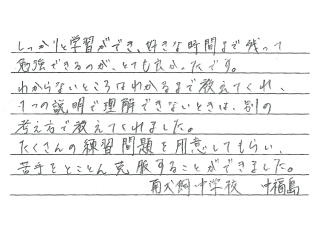 しっかりと学習ができ、好きな時間まで残って
勉強できるのが、とても良かったです。
わからないところはわかるまで教えてくれ、
1つの説明で理解できないときは、別の
考え方で教えてくれました。
たくさんの練習問題を用意してもらい、
苦手をとことん克服することができました。
犬飼中学校 福島